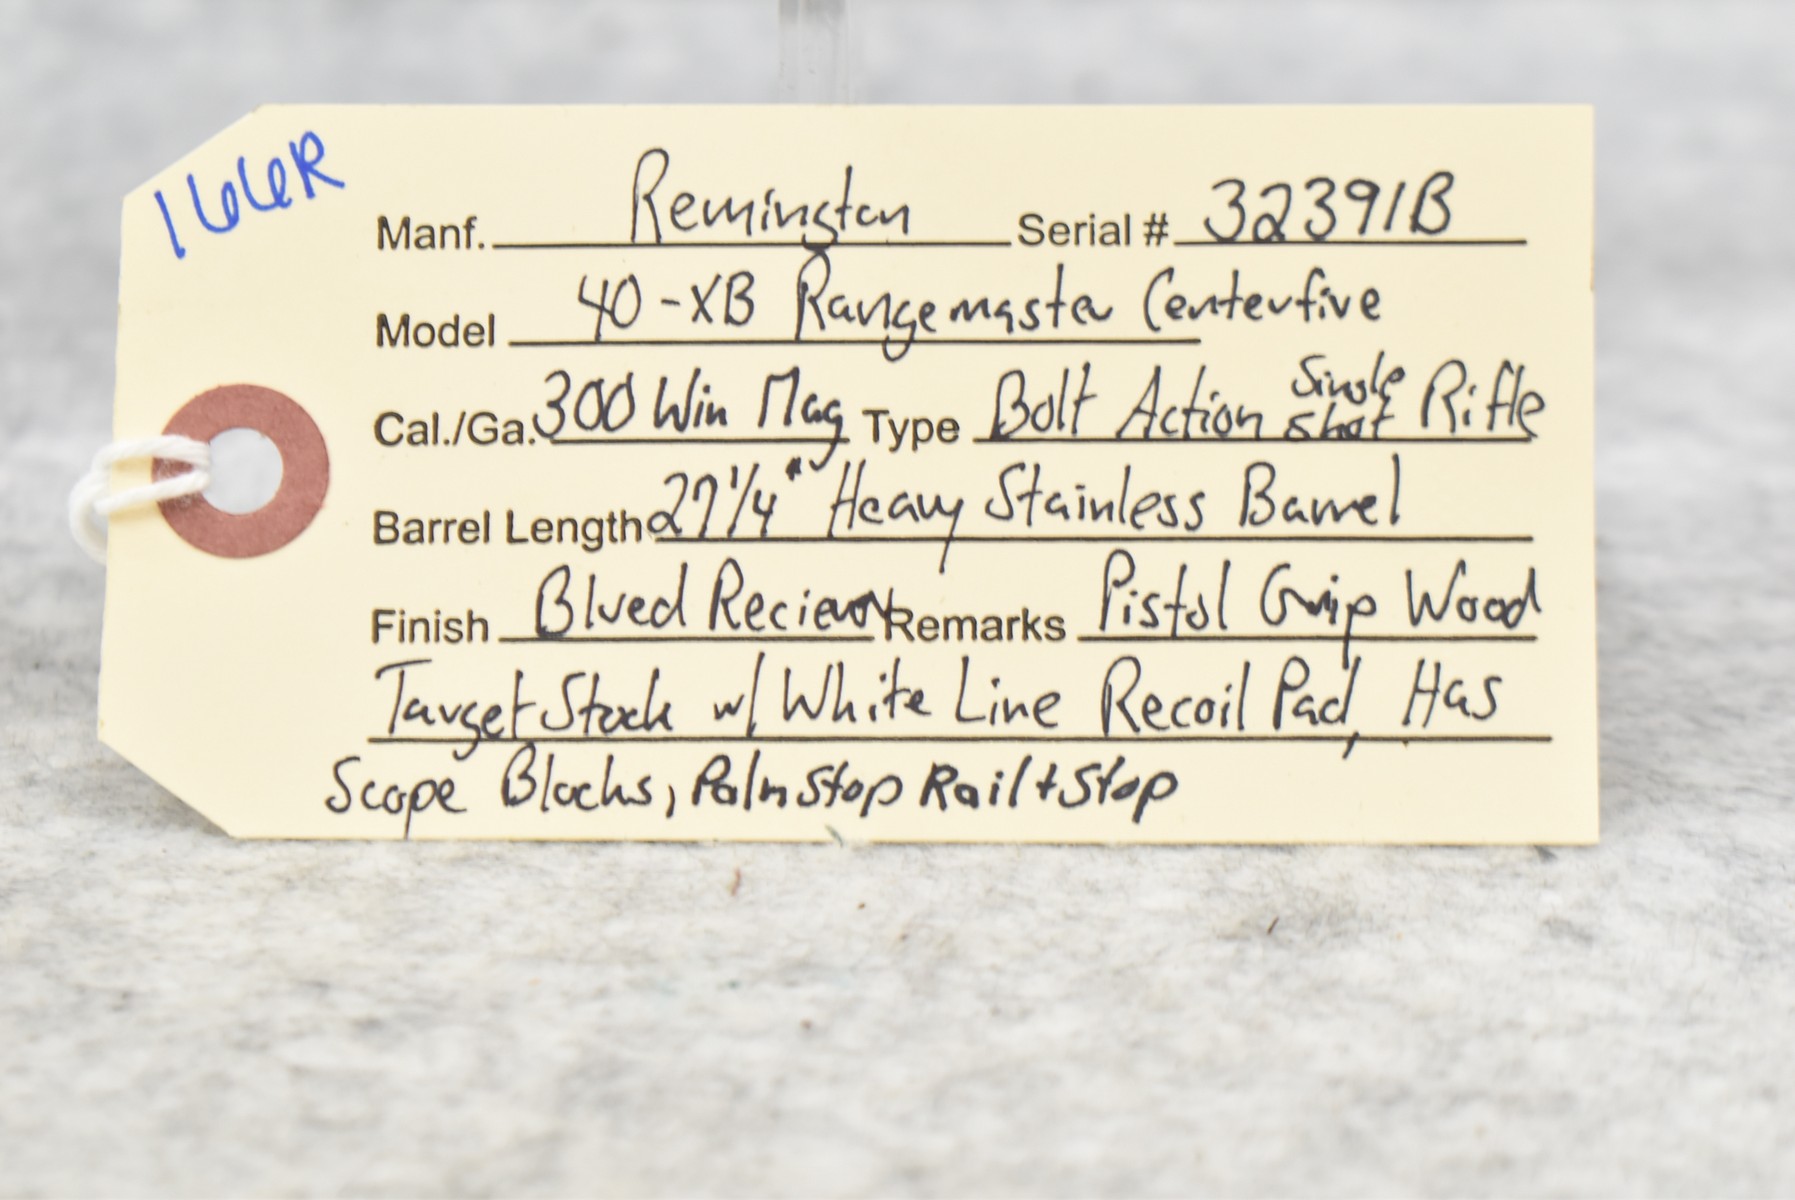 166R
Manf. Remington Serial # 32391B
Model 40-XB Rangemaster Centerfire
Cal./Ga. 300 Win Mag Type Bolt Action Single Shot Rifle
Barrel Length 27 1/4" Heavy Stainless Barrel
Finish Blued Reciever Remarks Pistol Grip Wood
Target Stock w/ White Line Recoil Pad, Has
Scope Blocks, Palm Stop Rail + Stop